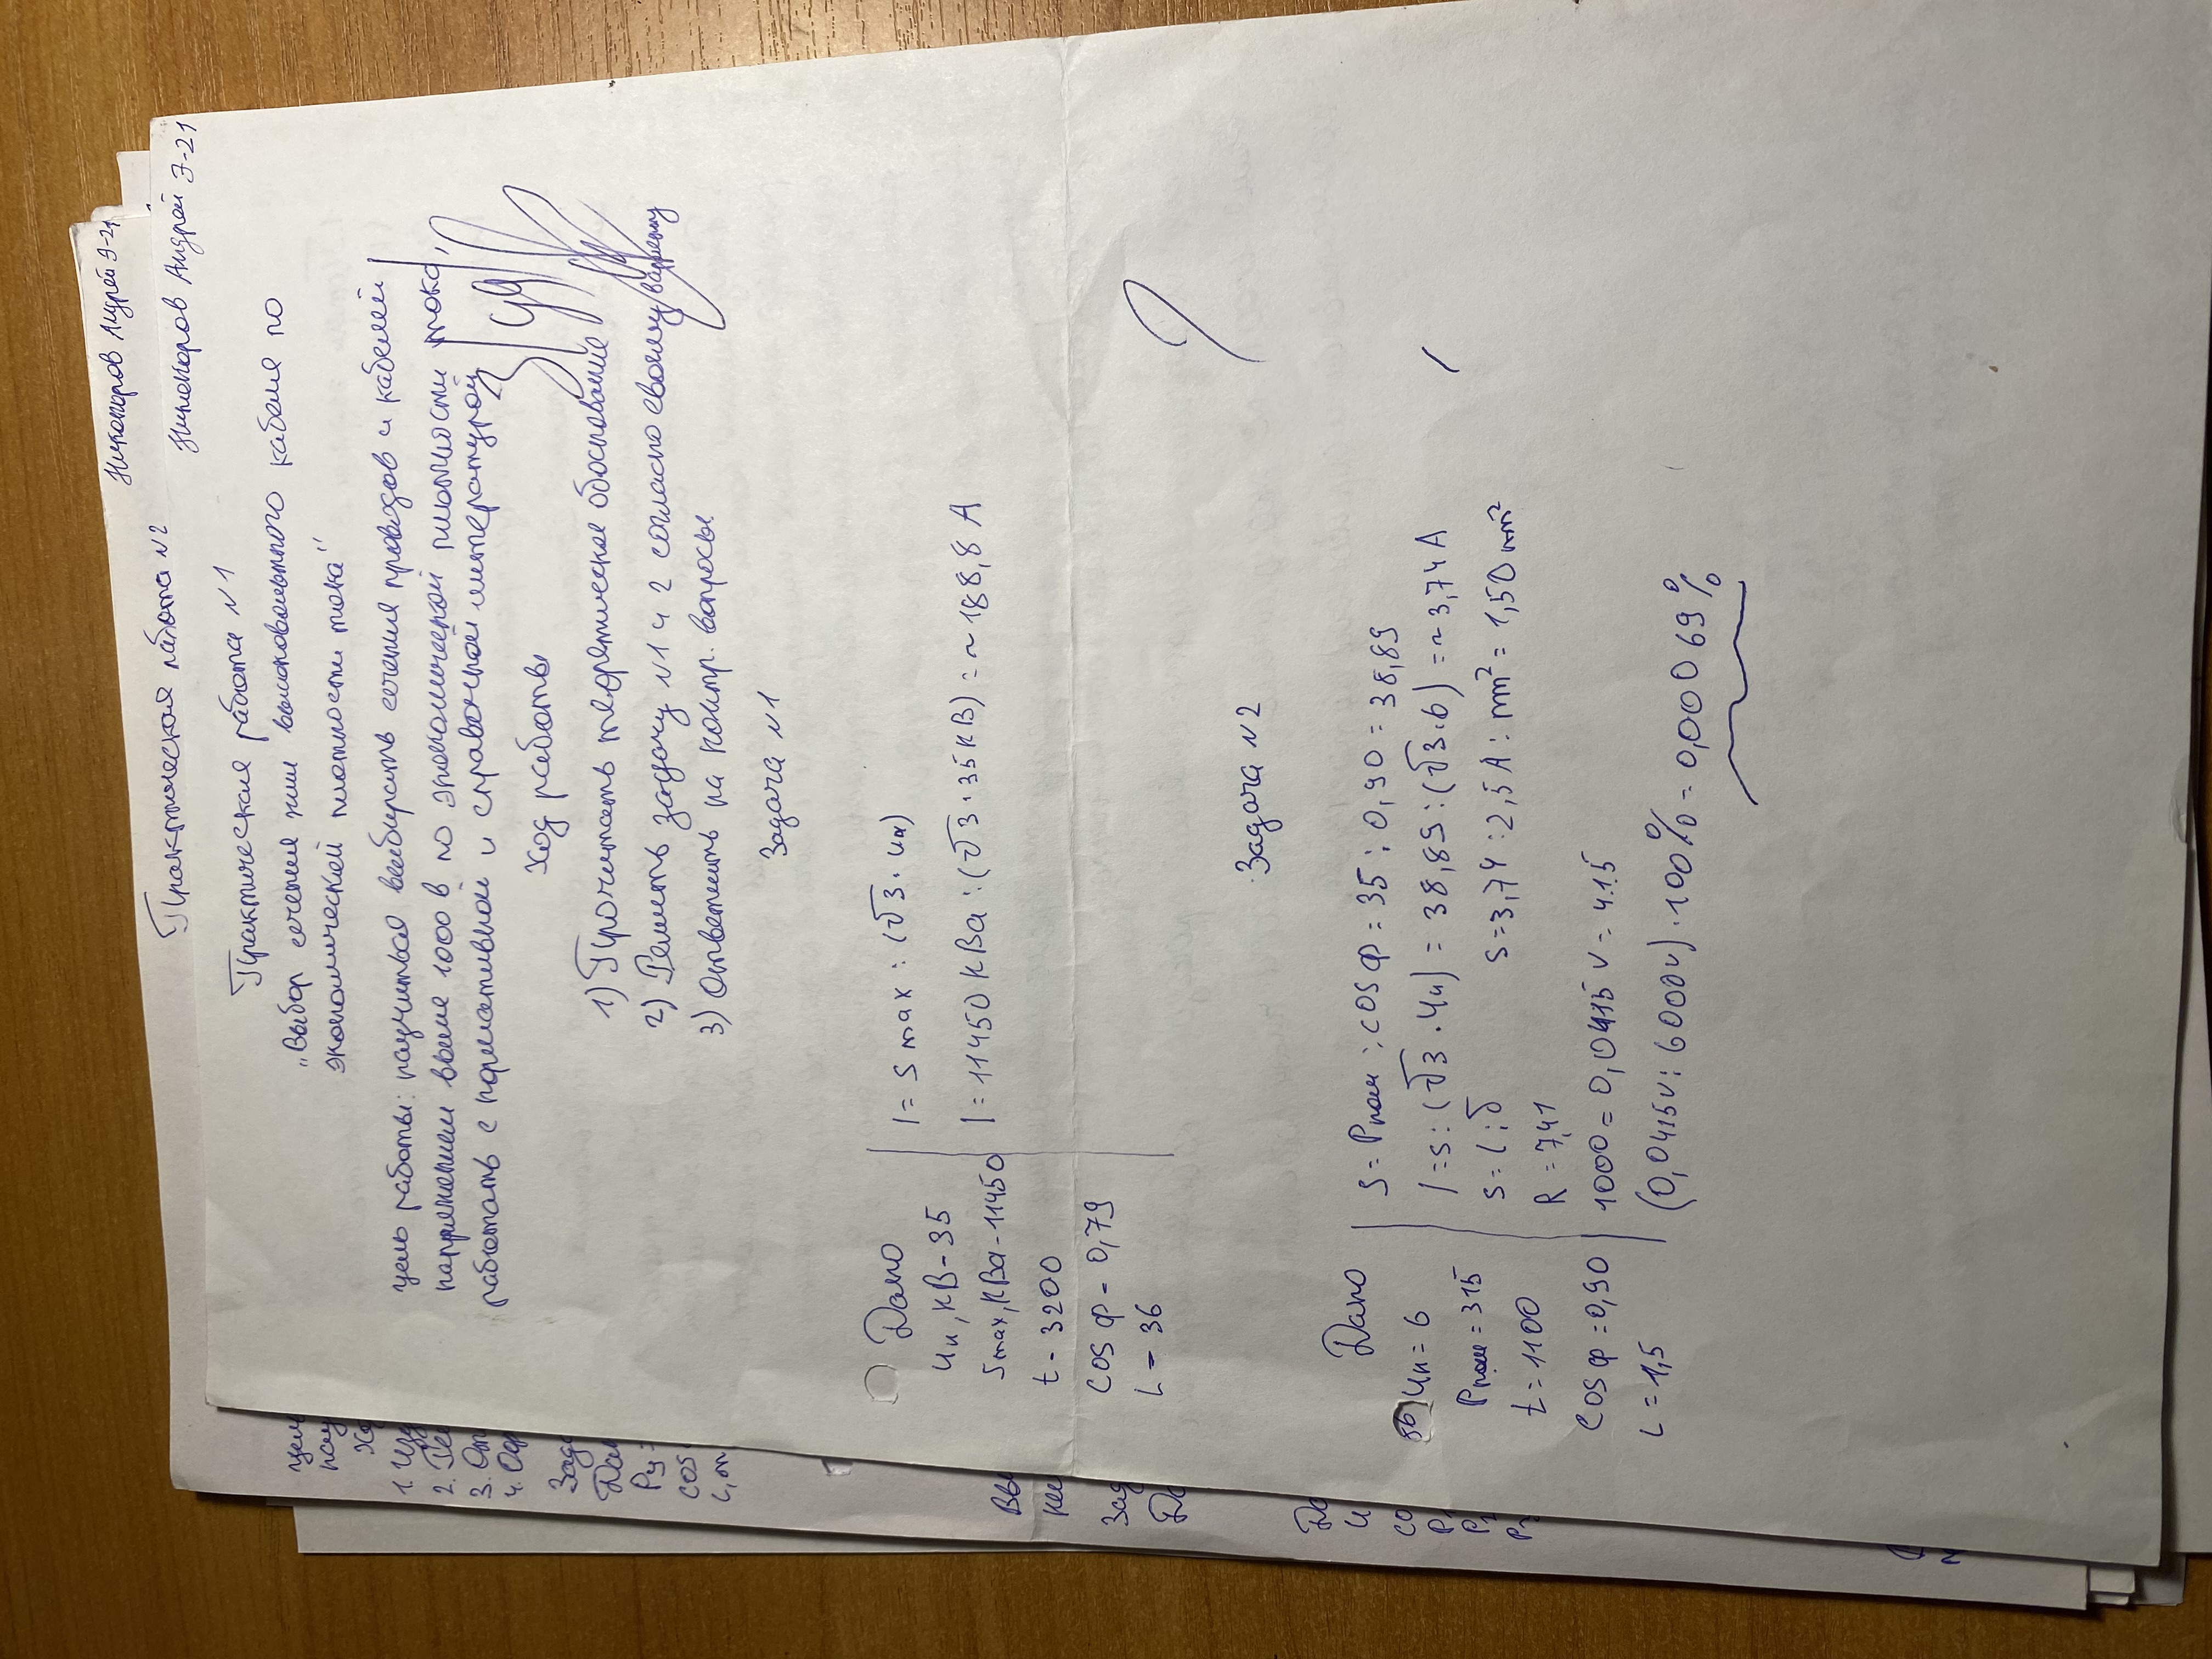 Никоноров Андрей Э-21
Практическая работа N2
Никоноров Андрей Э-21
Практическая работа N1
"Выбор сечения жил высоковольтного кабеля по
экономической плотности тока"
Цель работы: научиться выбирать сечения проводов и кабелей
напряжением выше 1000 в по экономической плотности тока,
работать с нормативной и справочной литературой
Ход работы
1) Прочитать теоретическое обоснование
2) Решить задачу N1 и 2 согласно своему варианту
3) Ответить на контр. вопросы
Задача N1
Дано
Uн, кВ - 35
Smax, кВа - 11450
t - 3200
cos φ - 0,79
L - 36
I = S max : (√3 · Uн)
I = 11450 кВа : (√3 · 35кВ) = ~ 188,8 А
Задача N2
Дано
Uн = 6
Pном = 315
t = 1100
cos φ = 0,90
L = 1,5
S = Pном : cos φ = 35 : 0,90 = 38,89
I = S : (√3 · Uн) = 38,89 : (√3 · 6) = ~ 3,74 А
S = I : δ
S = 3,74 : 2,5 А : mm² = 1,50 mm²
R = 7,41
1000 = 0,0415 v = 4.15
(0,0415v : 6000v) · 100% = 0,00069%
цель
1.
2.
3.
4.
Зада
Дан
cos
Вы
Зад